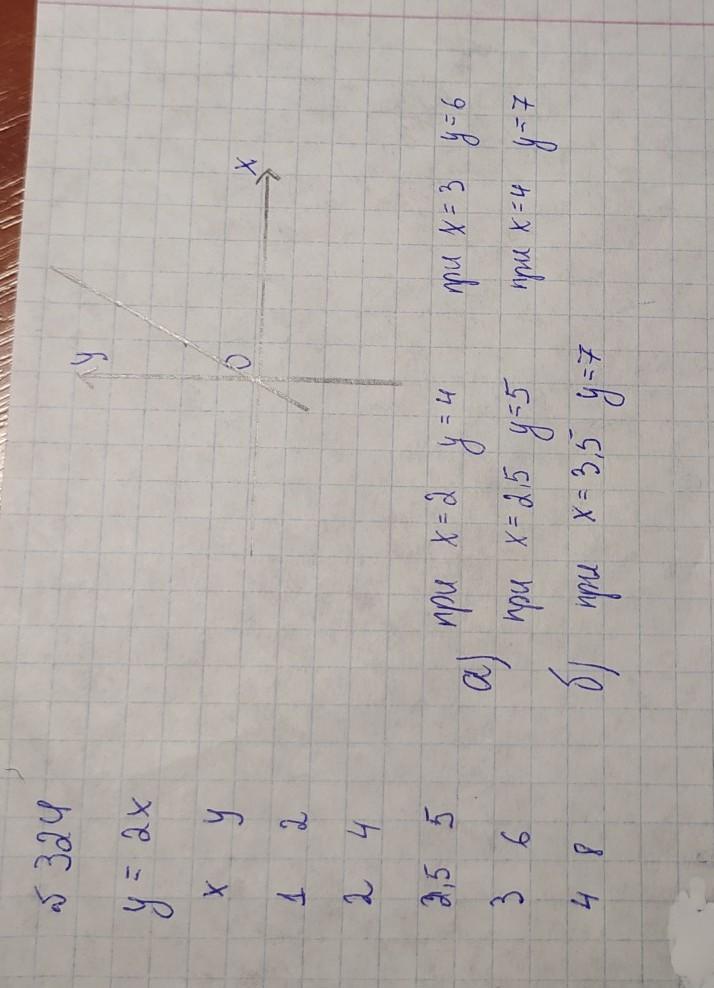 № 324
y = 2x
x y
1 2
2 4
2,5 5
3 6
4 8
y
0
x
а) при x = 2 y = 4 при x = 3 y = 6
при x = 2,5 y = 5 при x = 4 y = 7
б) при x = 3,5 y = 7